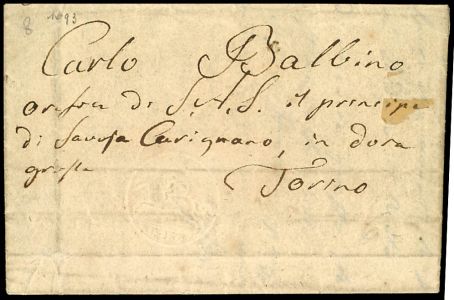 8 1893
Carlo Balbino
orefice di S.A.S. il principe
di Savoja Carignano, in dora
grossa
Torino